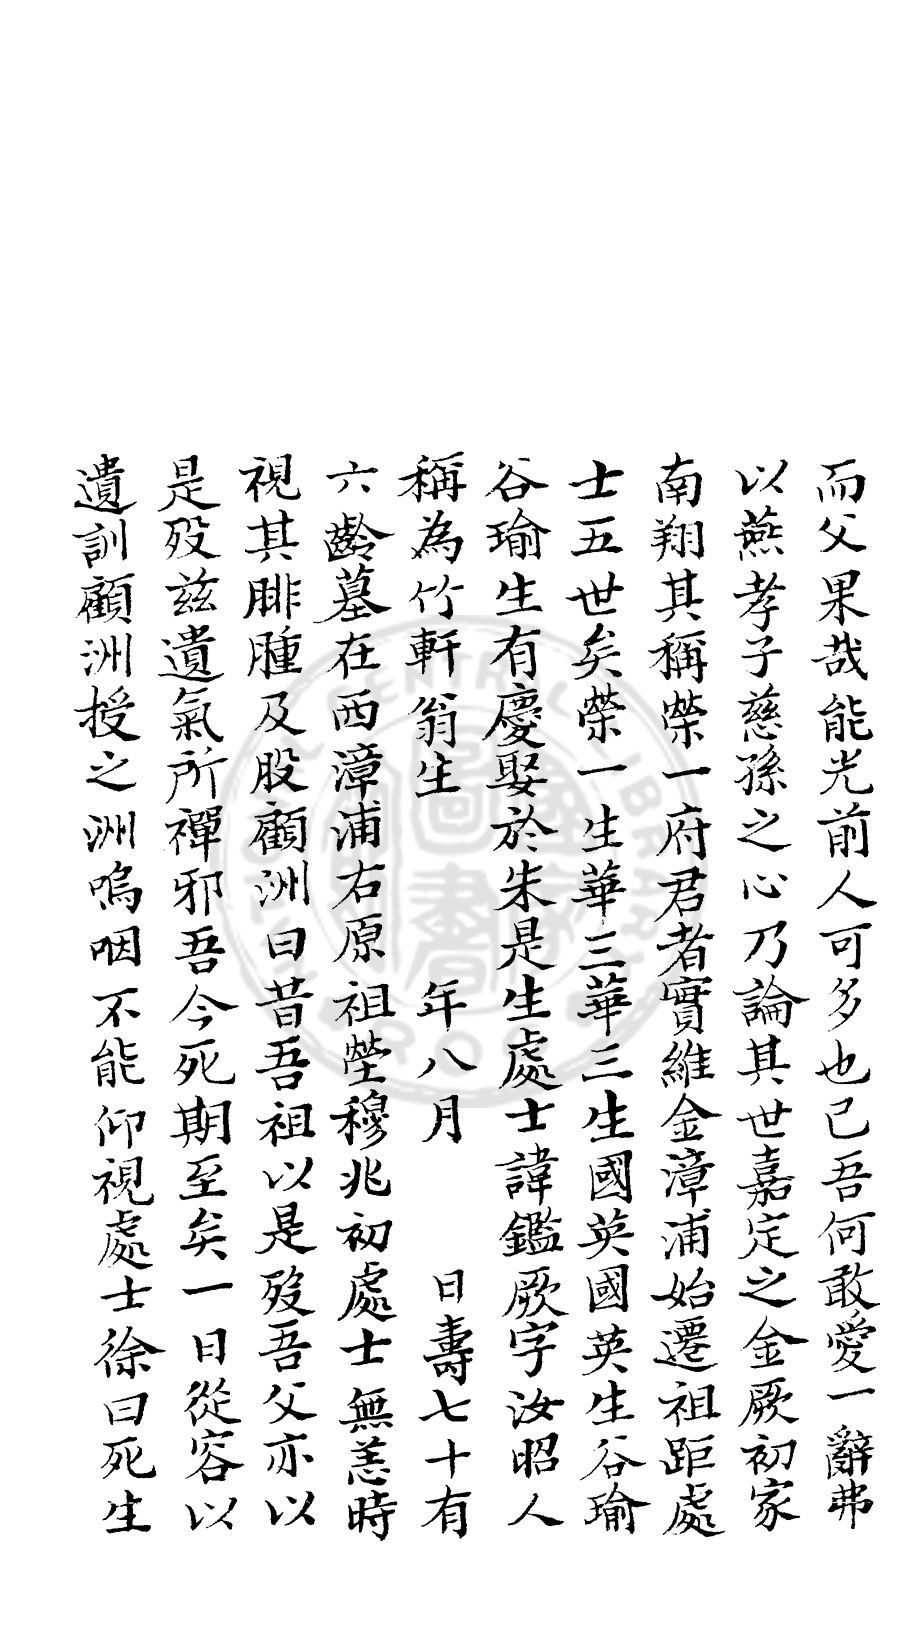 而父果哉能光前人可多也已吾何敢愛一辭弗
以燕孝子慈孫之心乃論其世嘉定之金厥初家
南翔其稱榮一府君者實維金漳浦始遷祖距處
士五世矣榮一生華三華三生國英國英生谷瑜
谷瑜生有慶娶於朱是生處士諱鑑厥字汝昭人
稱為竹軒翁生　年八月　日壽七十有
六齡墓在西漳浦右原　祖塋穆兆初處士無恙時
視其腓腫及股顧洲曰昔吾祖以是歿吾父亦以
是歿茲遺氣所禪邪吾今死期至矣一日從容以
遺訓顧洲授之洲嗚咽不能仰視處士徐曰死生